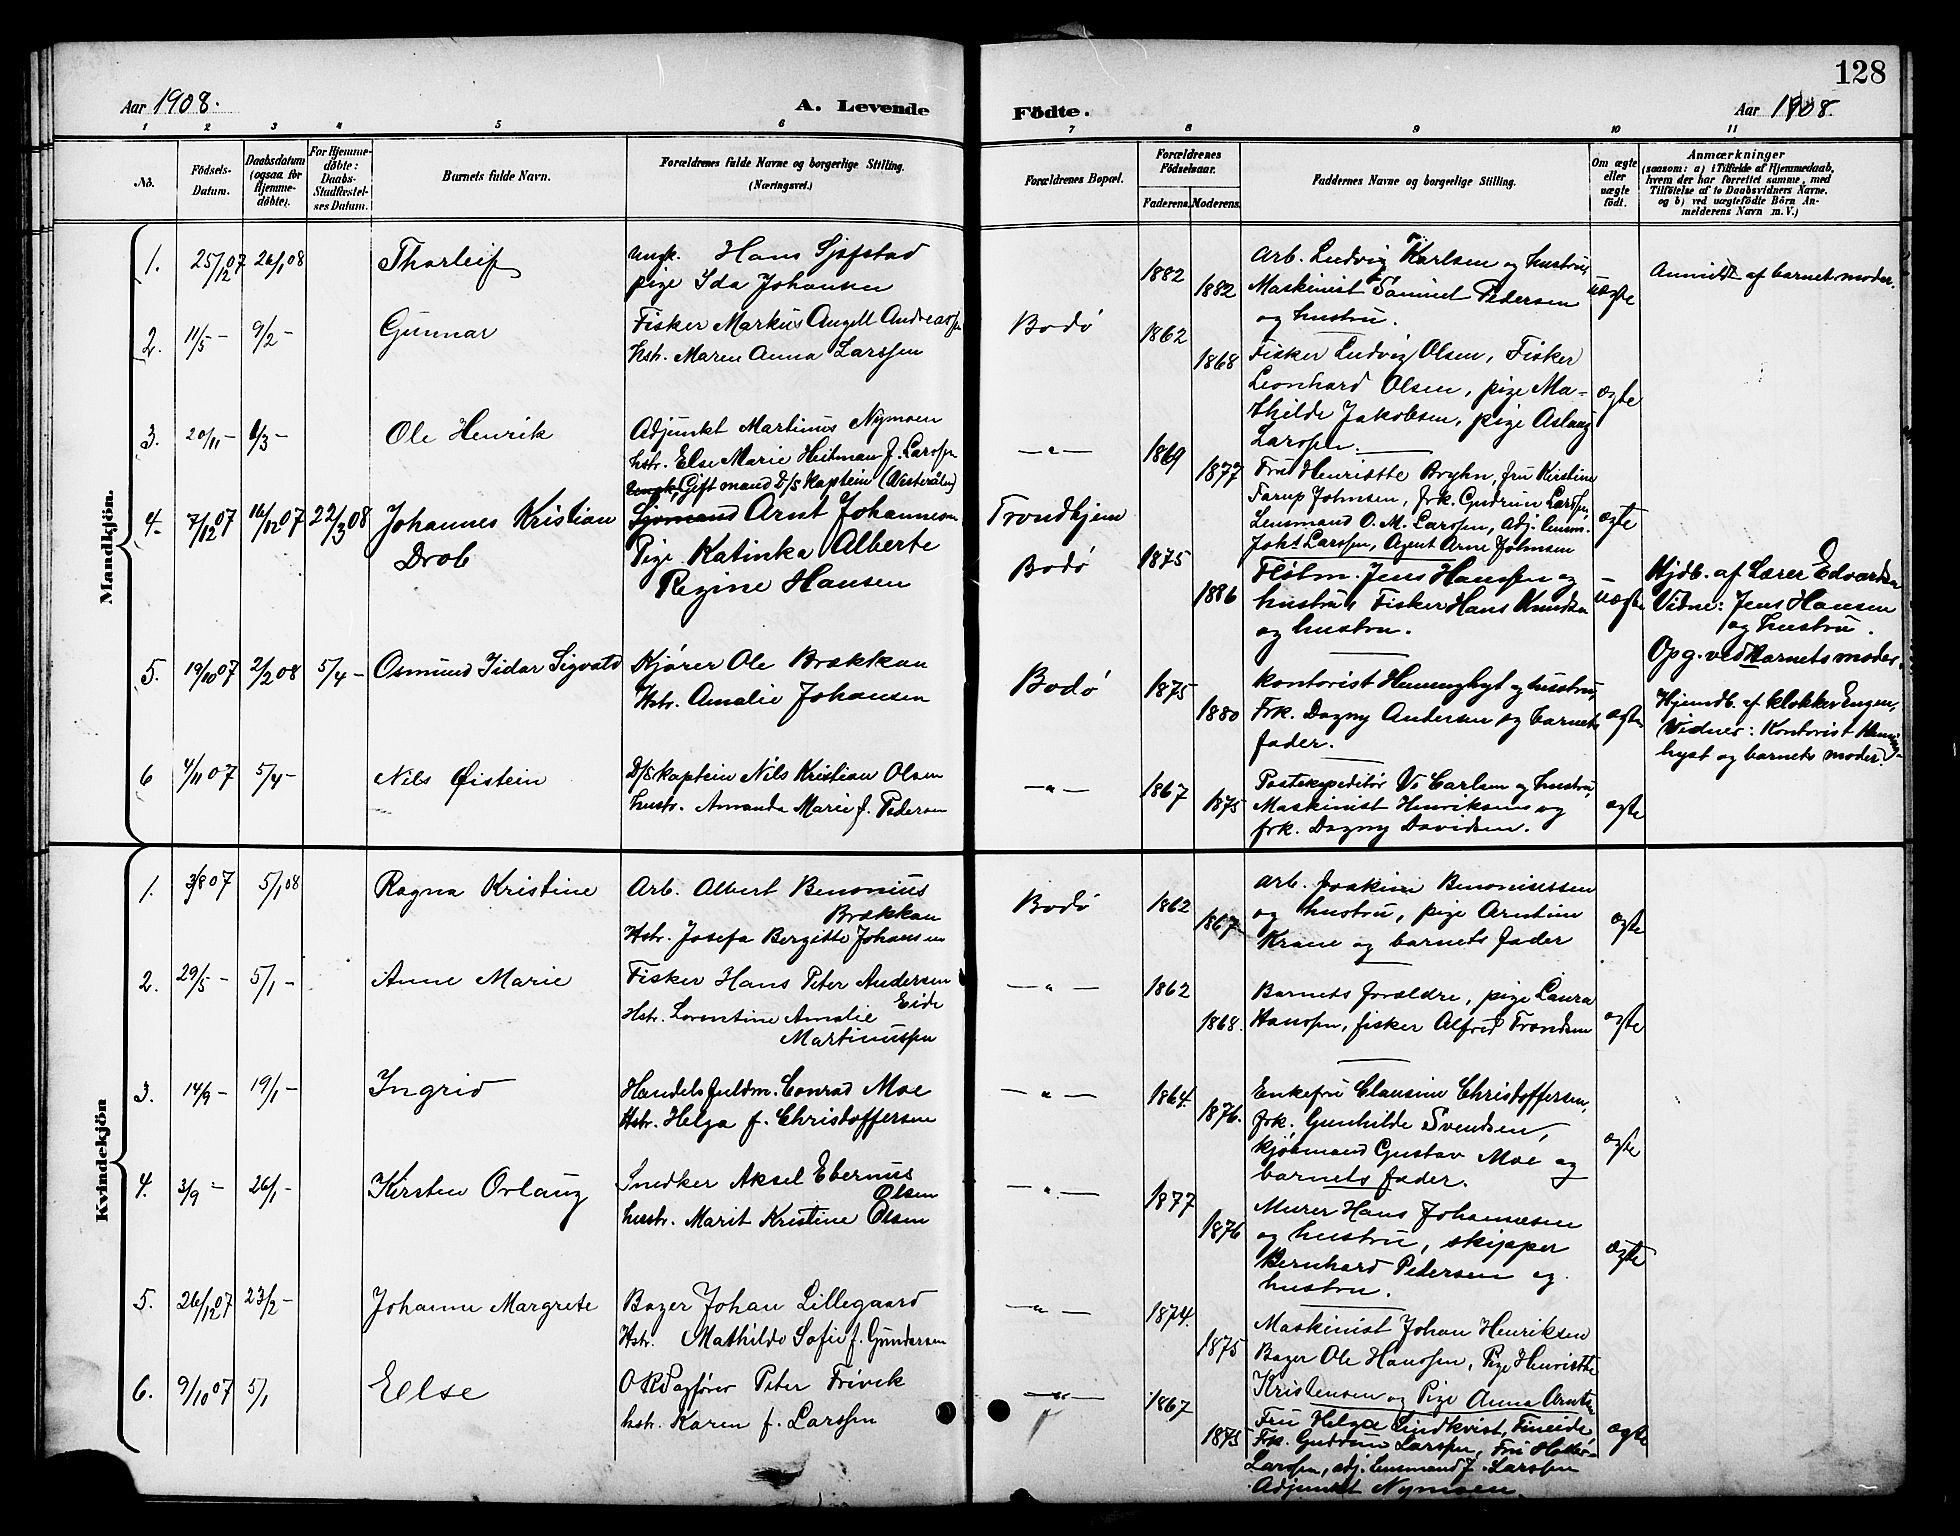 128
Aar 1908.
A. Levende
Födte.
Aar 1908.
1 2 3 4 5 6 7 8 9 10 11
No.
Födsels-
Datum.
Daabsdatum
(ogsaa for
Hjemme-
döbte).
For Hjemme-
döbte:
Daabs-
Stadfæstel-
ses Datum.
Barnets fulde Navn.
Forældrenes fulde Navne og borgerlige Stilling.
(Næringsvei.)
Forældrenes Bopæl.
Forældrenes
Födselsaar.
Faderens. Moderens.
Faddernes Navne og borgerlige Stilling.
Om ægte
eller
uægte
födt.
Anmærkninger
(saasom: a) i Tilfælde af Hjemmedaab,
hvem der har forrettet samme, med
Tilföielse af to Daabsvidners Navne,
og b) ved uægtefödte Börn An-
melderens Navn m. V.)
Mandkjön.
1. 25/12 07 26/1 08 Thorleif
Ungk. Hans Sjøfstad
pige Ida Johansen
1882 1882
Arb. Ludvig Karlsen og hustru,
Maskinist Samuel Pedersen
og hustru.
uægte
Anmeldt af barnets moder.
2. 11/5 – 9/2 – Gunnar
Fisker Markus Angell Andreassen
hstr. Maren Anna Larssen
Bodø 1862 1868
Fisker Ludvig Olsen, Fisker
Leonhard Olsen, pige Ma-
thilde Jakobsen, pige Aslaug
Larssen.
ægte
3. 20/11 – 1/3 – Ole Henrik
Adjunkt Martinus Nymoen
hstr. Else Marie Heitman f. Larssen
– " – 1869 1877
Fru Henriette Bryhn, fru Kirstine
Farup Johnsen, frk. Gudrun Larssen,
Lensmand O. M. Larssen, adj. lensm.
Joh. Larssen, Agent Arne Johnsen
ægte
4. 7/12 07 16/12 07 22/3 08 Johannes Kristian
Drob
Ungk. Gift mand D/S Kaptein (Vesterålen)
Sjømand Arnt Johannesen
Pige Katinka Alberte
Regine Hansen
Trondhjem
Bodø 1875 1886
Fløtm. Jens Hanssen og
hustru, Fisker Hans Knudsen
og hustru.
uægte
Hjdb. af Lærer Edvardsen
Vidne: Jens Hansen
og hustru.
Opg. ved barnets moder.
5. 19/10 07 2/2 08 5/4 – Osmund Iidar Sigvald
Kjører Ole Brækkan
Hstr. Amalie Johansen
Bodø 1875 1880
Kontorist Henninghyt og hustru,
Frk. Dagny Andersen og barnets
fader.
ægte
Hjemdb. af klokker Engen,
Vidner: Kontorist Henning-
hyst og barnets moder.
6 4/11 07 5/4 – Nils Øistein
D/S kaptein Nils Kristian Olsen
hustr. Amanda Marie f. Pedersen
– " – 1867 1875
Postexpeditör V. Carlsen og hustru,
Maskinist Henriksen og
frk. Dagny Davidsen.
ægte
Kvindekjön
1. 3/8 07 5/1 08 Ragna Kristine
Arb. Albert Benonius
Brækkan
Hstr. Josefa Bergitte Johansen
Bodø 1862 1867
Arb. Joakim Benoniussen
og hustru, pige Arntine
Krane og barnets fader
ægte
2. 29/5 – 5/1 – Anne Marie
Fisker Hans Peter Andersen
Eide
Hstr. Lorentine Amalie
Martinussen
– " – 1862 1868.
Barnets forældre, pige Laura
Hanssen, fisker Alfred Trondsen
ægte
3. 14/9 – 19/1 – Ingrid
Handelsfuldm. Conrad Moe
Hstr. Helga f. Christoffersen
– " – 1864. 1876.
Enkefru Clausine Christoffersen,
frk. Gunhilde Svendsen,
kjøbmand Gustav Moe og
barnets fader.
ægte
4. 3/9 – 26/1 – Kirsten Orlaug
Snedker Aksel Ebernus
Olsen
hustr. Marit Kristine Olsen
– " – 1877 1876
Murer Hans Johannesen
og hustru, skipper
Bernhard Pedersen og
hustru.
ægte
5. 26/12 07 23/2 – Johanne Margrete
Bager Johan Lillegaard
Hstr. Mathilde Sofie f. Gundersen
– " – 1874. 1875
Maskinist Johan Henriksen
Bager Ole Hanssen, Pige Henriette
Kristensen og Pige Anna Arntsen
6. 9/10 07 5/1 Else
ORSagfører Peter Frivik
hstr. Karen f. Larssen
– " – 1867 1875
Fru Helga Lindkvist, Fineide,
Frk. Guddrun Larssen, Fru
Larssen, adj. lensmand J. Larssen
Adjunkt Nymoen.
ægte